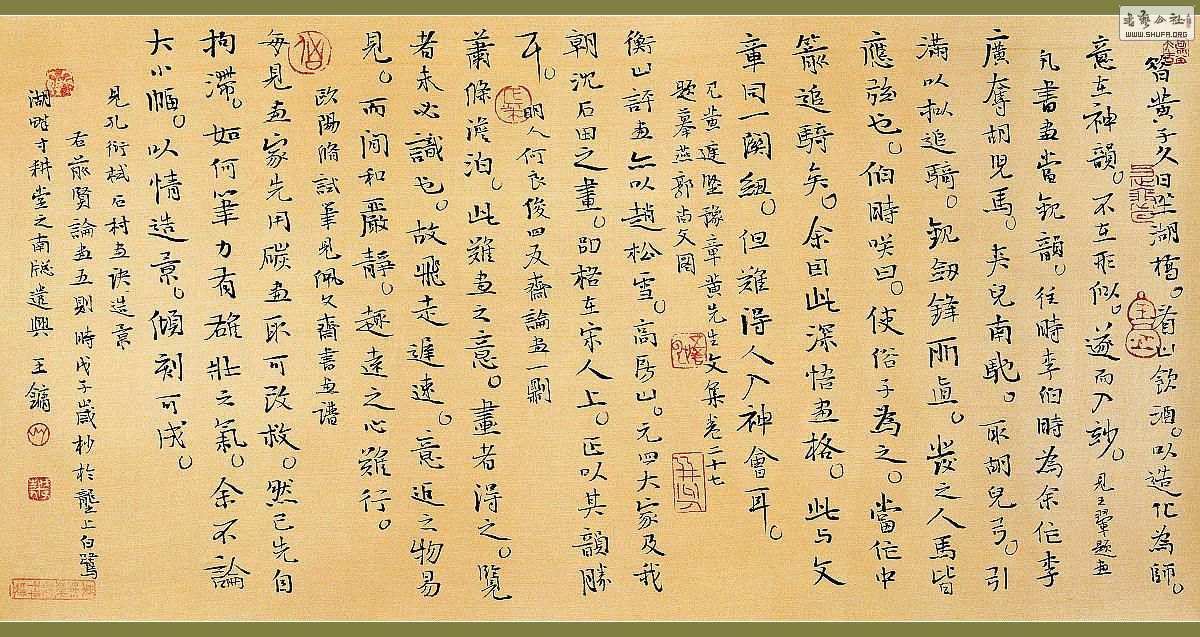 昔黄子久日坐湖橋。看山飲酒。以造化為師。
意在神韻。不在形似。遂而入玅。見王翬題畫
凡書畫當観韻。往時李伯時為余作李
廣奪胡兒馬。夾兒南馳。取胡兒弓。引
滿以拟追騎。観劒鋒所直。發之人馬皆
應弦也。伯時咲曰。使俗子為之。當作中
箭追騎矣。余曰此深悟畫格。此与文
章同一關紐。但難得人入神會耳。
见黄庭堅豫章黄先生文集卷二十七
題摹燕郭尚父圖
衡山評畫亦以趙松雪。高房山。元四大家及我
朝沈石田之畫。即格在宋人上。正以其韻勝
耳。明人何良俊四友齋論畫一則
蕭條澹泊。此難畫之意。畫者得之。覽
者未必識也。故飛走遲速。意近之物易
見。而閒和嚴靜。趣遠之心難行。
歐陽脩試筆見佩文齋書画譜
每見畫家先用碳畫取可改救。然已先自
拘滯。如何筆力有雄壯之氣。余不論
大小幅。以情造景。傾刻可成。
見孔衍栻石村画诀造景
右前賢論畫五則 時戊子歲杪於壟上白鷺
湖畔寸耕堂之南牕遣興 王鏞
书艺公社
WWW.SHUFA.ORG